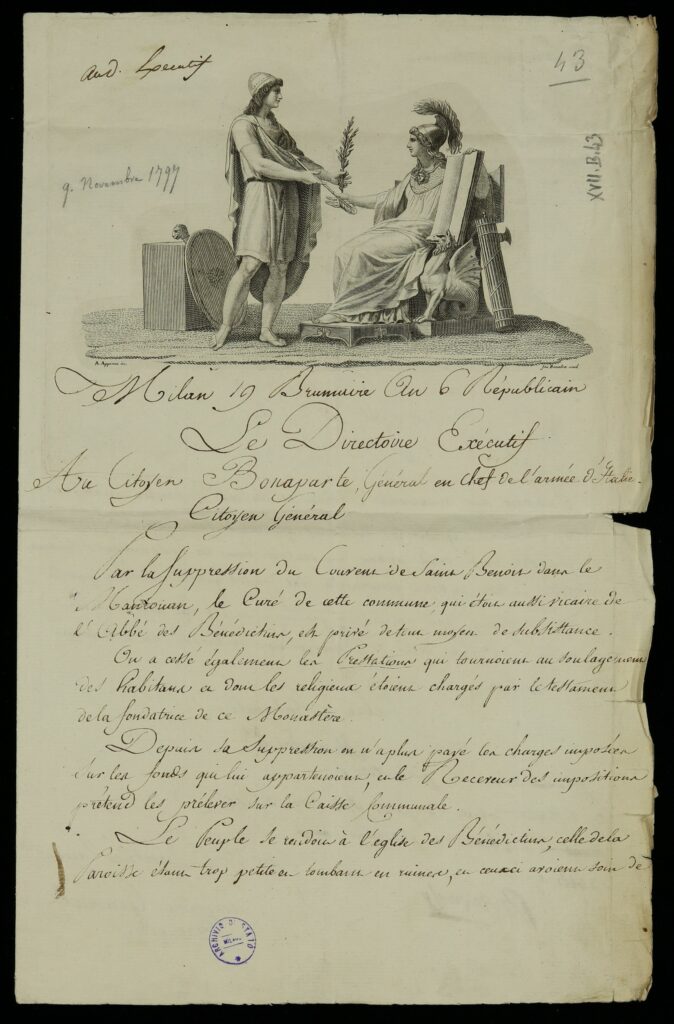 43
XVII.B.43
9. Novembre 1797
Milan 19 Brumaire An 6 Républicain
Le Directoire Exécutif
Au Citoyen Bonaparte, Général en chef de l'armée d'Italie.
Citoyen Général
Par la Suppression du Couvent de Saint Benoit dans le
Mantouan, le Curé de cette commune, qui étoit aussi vicaire de
l'Abbé des Bénédictins, est privé de tout moyen de subsistance.
On a cessé également les Prestations qui tournoient au soulagement
des habitans et dont les religieux étoient chargés par le testament
de la fondatrice de ce Monastère.
Depuis sa Suppression on n'a plus payé les charges imposées
sur les fonds qui lui appartenoient, et le Receveur des impositions
prétend les prélever sur la Caisse Communale.
Le Peuple se rendoit à l'eglise des Bénédictins, celle de la
Paroisse étant trop petite et tombant en ruines, et ceux ci avoient soin de
ARCHIVIO DI STATO
MILANO